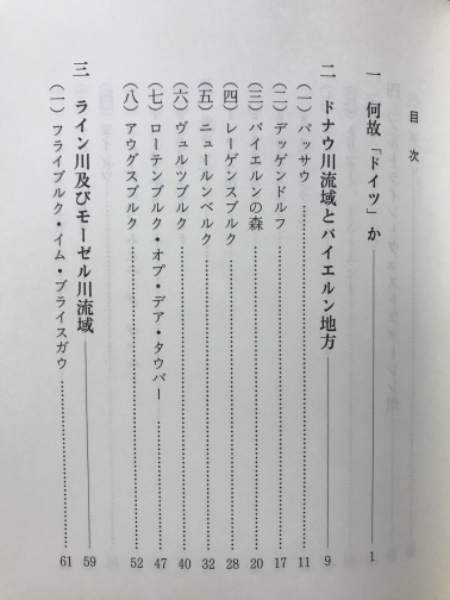 目次
一 何故「ドイツ」か 1
二 ドナウ川流域とバイエルン地方 9
（一）パッサウ 11
（二）デッゲンドルフ 17
（三）バイエルンの森 20
（四）レーゲンスブルク 28
（五）ニュールンベルク 32
（六）ヴュルツブルク 40
（七）ローテンブルク・オプ・デア・タウバー 47
（八）アウグスブルク 52
三 ライン川及びモーゼル川流域 59
（一）フライブルク・イム・ブライスガウ 61